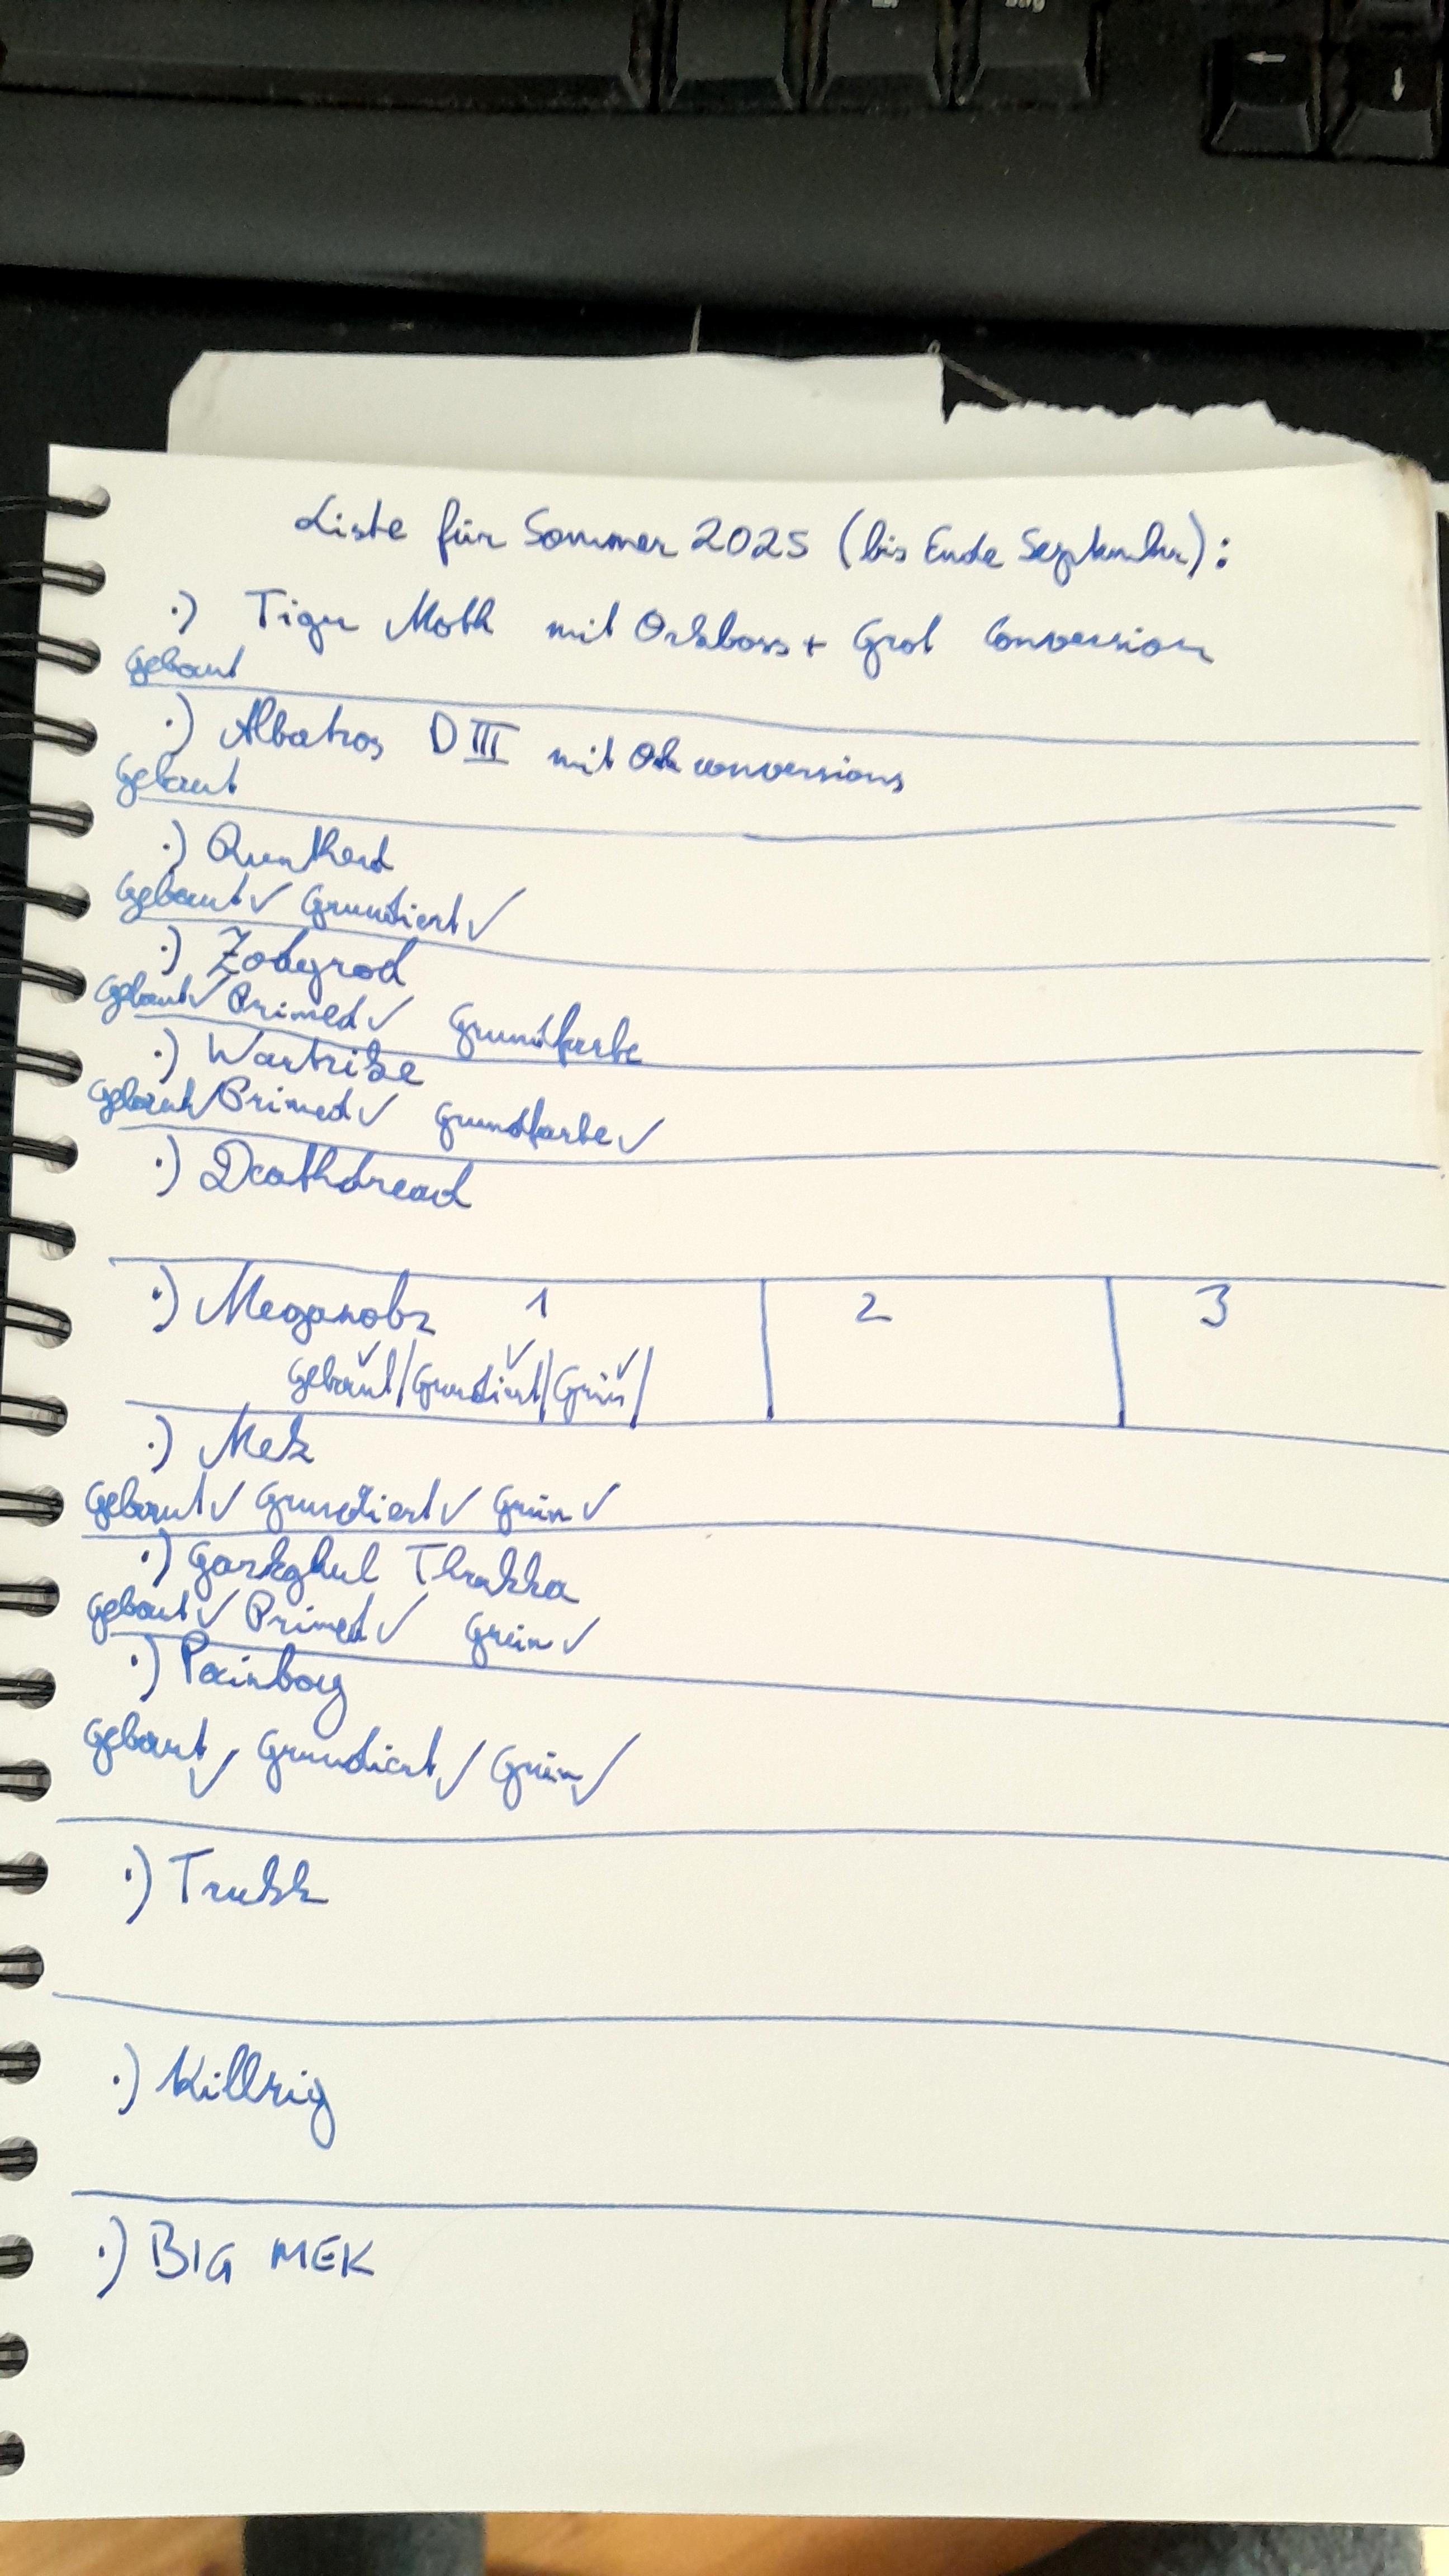 Liste für Sommer 2025 (bis Ende September):
.) Tiger Moth mit Orkboss + Grot Conversion
Gebaut
.) Albatros D III mit Ork conversions
Gebaut
.) Runtherd
Gebaut ✓ Grundiert ✓
.) Zodgrod
Gebaut ✓ Primed ✓ Grundfarbe
.) Wartrike
Gebaut ✓ Primed ✓ Grundfarbe ✓
.) Deathdread
.) Meganobz 1 2 3
✓ ✓ ✓
Gebaut | Grundiert | Grün |
.) Mek
Gebaut ✓ Grundiert ✓ Grün ✓
.) Gazkghul Thrakka
Gebaut ✓ Primed ✓ Grün ✓
.) Painboy
Gebaut ✓ Grundiert ✓ Grün ✓
.) Trukk
.) Killrig
.) BIG MEK